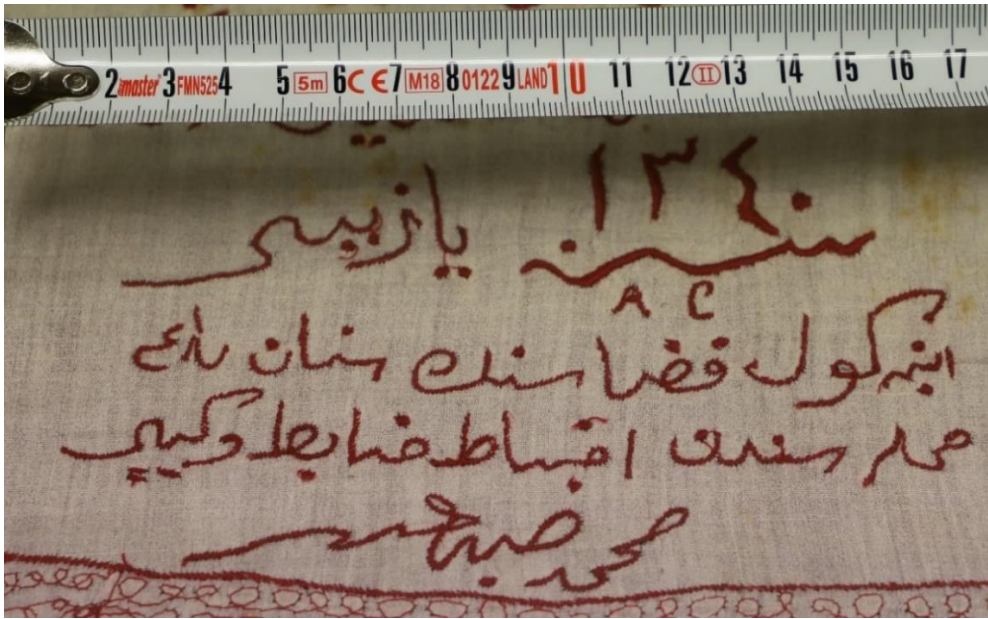 2 master 3 FMN525 4 5 5m 6 CE 7 M18 8 0122 9 LAND 10 11 12 II 13 14 15 16 17
١٣٤٠
سنه
اينه كول قضاسنك سنان
محله سندن اقساط ضابط وكيلى
محمد صبحى